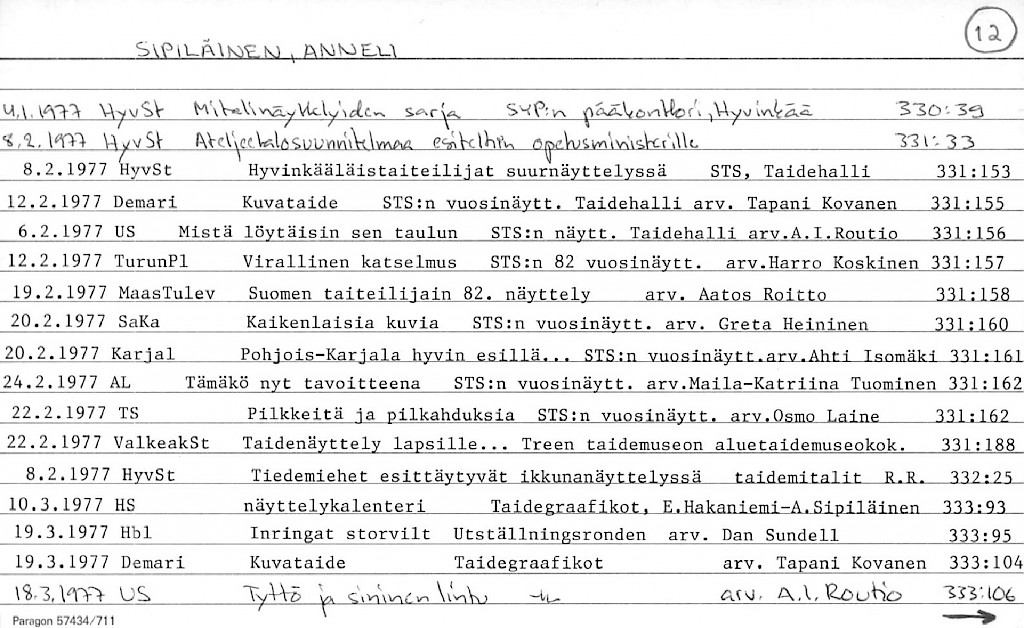 12
SIPILÄINEN, ANNELI
4.1.1977 HyvSt Mitelinäyttelyiden sarja SYP:n pääkonttori, Hyvinkää 330:39
8.2.1977 HyvSt Ateljeetalosuunnitelmaa esiteltiin opetusministerille 331:33
8.2.1977 HyvSt Hyvinkääläistaiteilijat suurnäyttelyssä STS, Taidehalli 331:153
12.2.1977 Demari Kuvataide STS:n vuosinäytt. Taidehalli arv. Tapani Kovanen 331:155
6.2.1977 US Mistä löytäisin sen taulun STS:n näytt. Taidehalli arv.A.I.Routio 331:156
12.2.1977 TurunPl Virallinen katselmus STS:n 82 vuosinäytt. arv.Harro Koskinen 331:157
19.2.1977 MaasTulev Suomen taiteilijain 82. näyttely arv. Aatos Roitto 331:158
20.2.1977 SaKa Kaikenlaisia kuvia STS:n vuosinäytt. arv. Greta Heininen 331:160
20.2.1977 Karjal Pohjois-Karjala hyvin esillä... STS:n vuosinäytt.arv.Ahti Isomäki 331:161
24.2.1977 AL Tämäkö nyt tavoitteena STS:n vuosinäytt. arv.Maila-Katriina Tuominen 331:162
22.2.1977 TS Pilkkeitä ja pilkahduksia STS:n vuosinäytt. arv.Osmo Laine 331:162
22.2.1977 ValkeakSt Taidenäyttely lapsille... Treen taidemuseon aluetaidemuseokok. 331:188
8.2.1977 HyvSt Tiedemiehet esittäytyvät ikkunanäyttelyssä taidemitalit R.R. 332:25
10.3.1977 HS näyttelykalenteri Taidegraafikot, E.Hakaniemi-A.Sipiläinen 333:93
19.3.1977 Hbl Inringat storvilt Utställningsronden arv. Dan Sundell 333:95
19.3.1977 Demari Kuvataide Taidegraafikot arv. Tapani Kovanen 333:104
18.3.1977 US Tyttö ja sininen lintu -"- arv. A.I. Routio 333:106
Paragon 57434/711